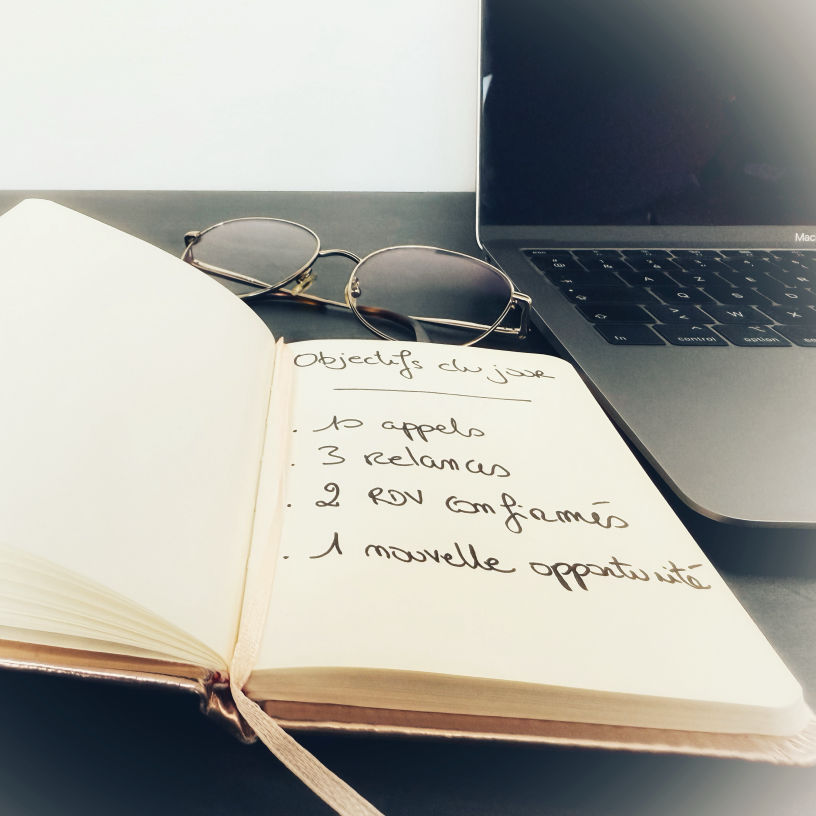 Objectifs du jour
. 10 appels
. 3 relances
. 2 RDV confirmés
. 1 nouvelle opportunité
Mac
esc
A Z
Q S D
W X
fn control option